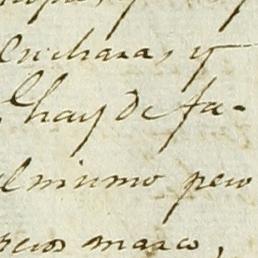 cucharas, y
hay de fa-
el mismo peso
pesos marco,